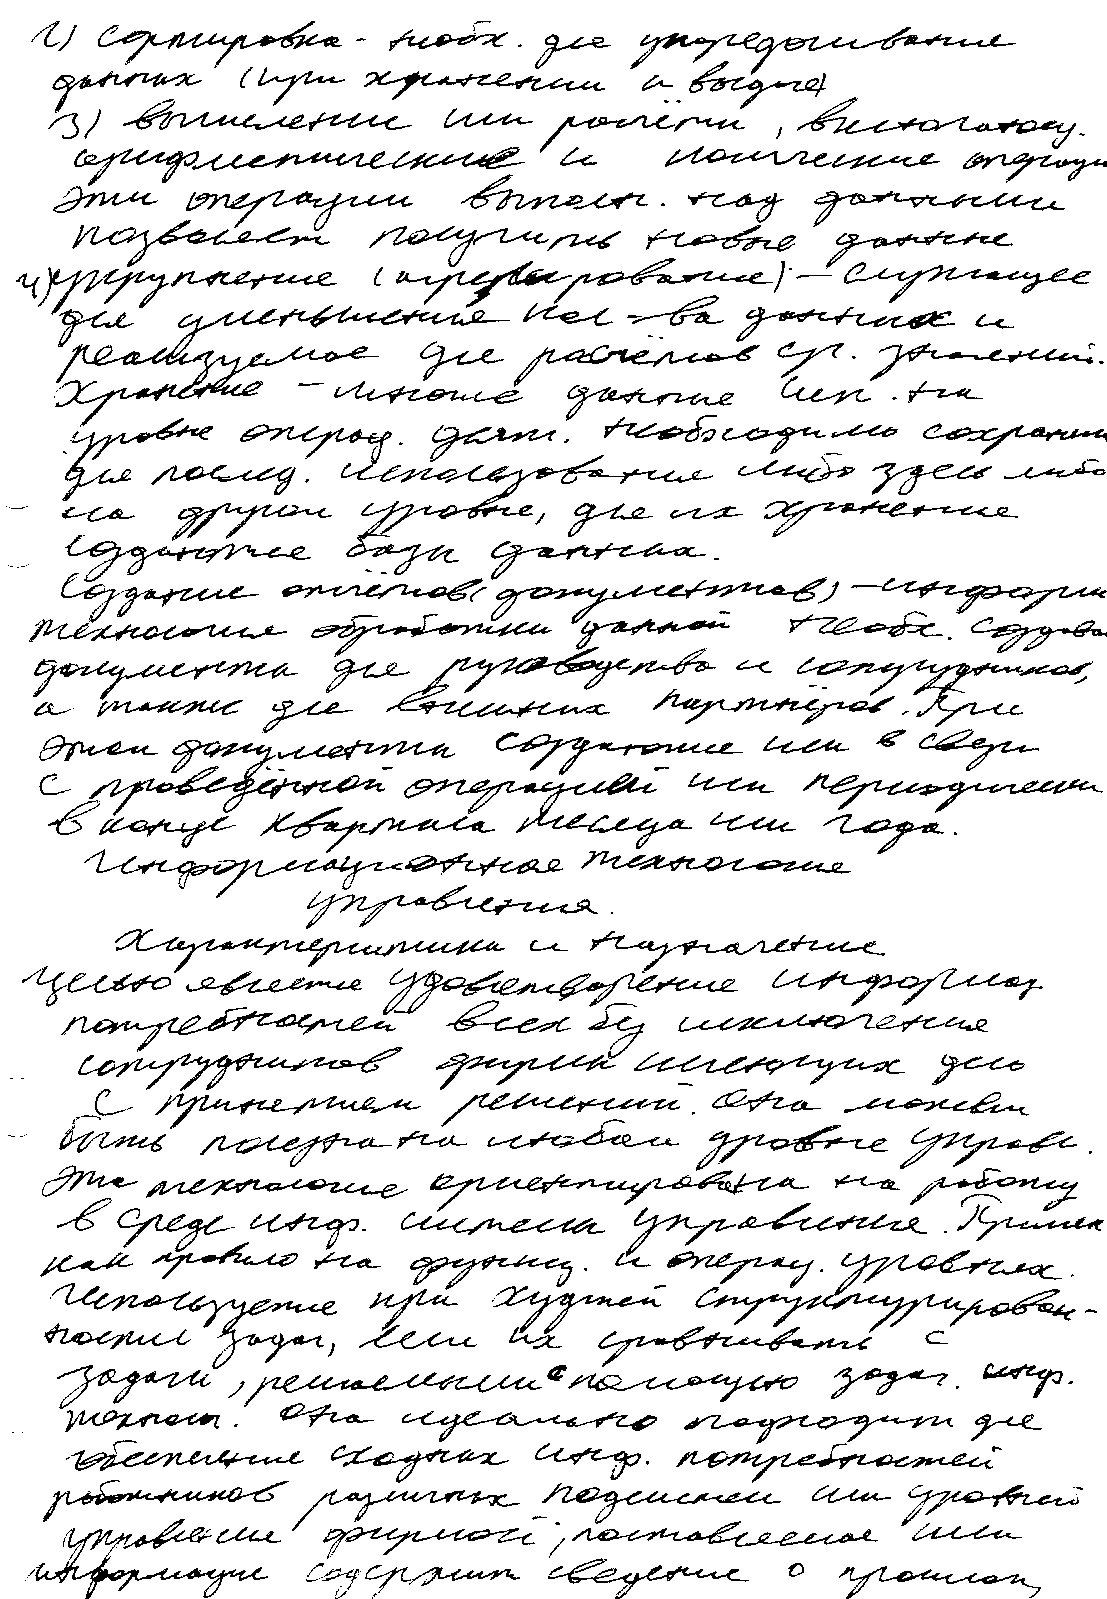 2) Сортировка - необх. для упорядочивание
данных (при хранении и выдаче)
3) вычисление или расчёты, включающ.
арифметические и логические операции
Эти операции выполн. над данными
позволяет получить новые данные
4) укрупнение (агрегирование) - служащее
для уменьшения кол-ва данных и
реализуемое для расчётов ср. значений.
Хранение - многие данные исп. на
уровне операц. деят. необходимо сохранить
для послед. использования либо здесь либо
на другом уровне, для их хранение
созданные базы данных.
Создание отчётов (документов) - информ
технология обработки данной необх. создава
документы для руководства и сотрудников,
а также для внешних партнёров. При
этом документы создаются или в связи
с проведённой операцией или периодически
в конце квартала месяца или года.
Информационная технология
управления.
Характеристика и назначение
Целью является удовлетворение информац.
потребностей всех без исключения
сотрудников фирмы имеющих дело
с принятием решений. Она может
быть полезна на любом уровне управл.
Эта технология ориентирована на работу
в среде инф. системы управления. Примен
как правило на функц. и операц. уровнях.
Используется при худшей структурирован-
ности задач, если их сравнивать с
задачи, решаемыми с помощью задач. инф.
технол. Она идеально подходит для
обеспечение сходных инф. потребностей
работников различных подсистем или уровней
управление фирмой, поставляемая или
информация содержит сведение о прошлом,